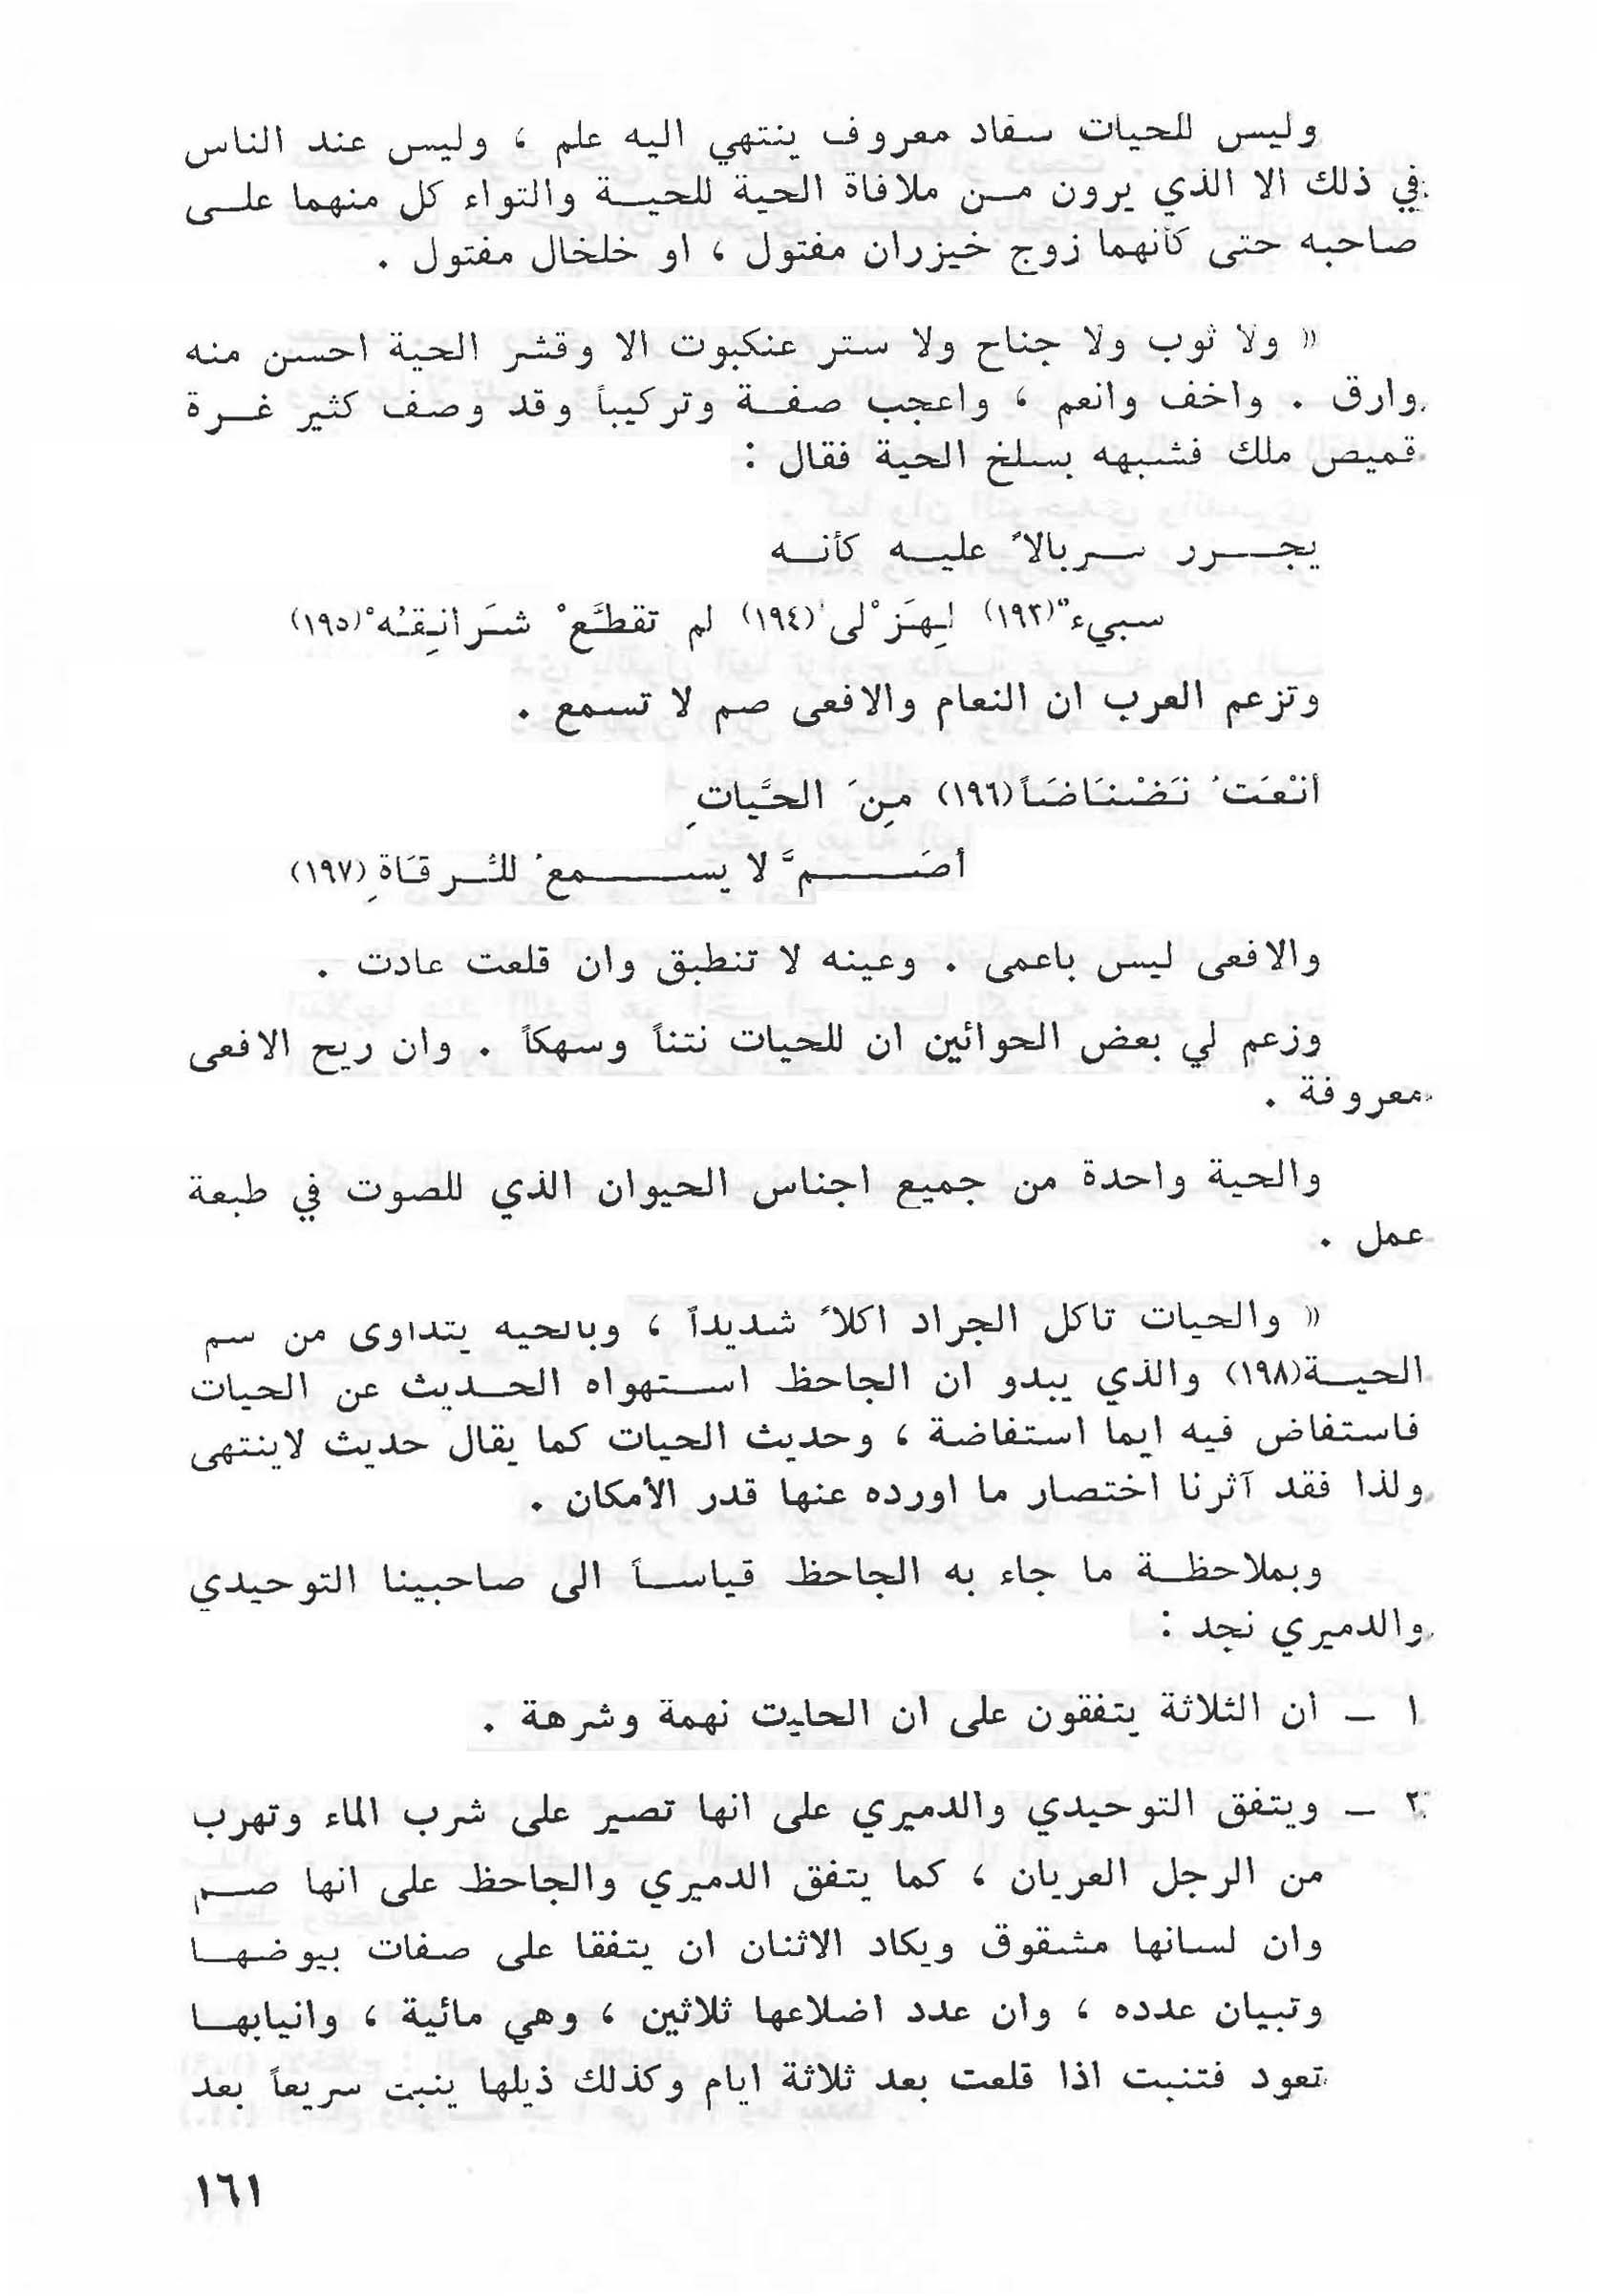 وليس للحيات سفاد معروف ينتهي اليه علم ، وليس عند الناس
في ذلك الا الذي يرون من ملافاة الحية للحية والتواء كل منهما على
صاحبه حتى كأنهما زوج خيزران مفتول ، او خلخال مفتول .
« ولا ثوب ولا جناح ولا ستر عنكبوت الا وقشر الحية احسن منه
وارق . واخف وانعم ، واعجب صفة وتركيباً وقد وصف كثير غرة
قميص ملك فشبهه بسلخ الحية فقال :
يجرر سربالاً عليه كأنه
سبيءٌ(١٩٣) لِهَزْلى(١٩٤) لم تقطَّعْ شَرَانِقُهْ(١٩٥)
وتزعم العرب ان النعام والافعى صم لا تسمع .
أنْعَتُ نَضْنَاضَاً(١٩٦) مِنَ الحَّيَاتِ
أصَمَّ لا يسمعُ للرقَاةِ(١٩٧)
والافعى ليس باعمى . وعينه لا تنطبق وان قلعت عادت .
وزعم لي بعض الحوائين ان للحيات نتناً وسهكاً . وان ريح الافعى
معروفة .
والحية واحدة من جميع اجناس الحيوان الذي للصوت في طبعة
عمل .
« والحيات تاكل الجراد اكلاً شديداً ، وبالحيه يتداوى من سم
الحية(١٩٨) والذي يبدو ان الجاحظ استهواه الحديث عن الحيات
فاستفاض فيه ايما استفاضة ، وحديث الحيات كما يقال حديث لاينتهى
ولذا فقد آثرنا اختصار ما اورده عنها قدر الأمكان .
وبملاحظة ما جاء به الجاحظ قياساً الى صاحبينا التوحيدي
والدميري نجد :
١ – ان الثلاثة يتفقون على ان الحايت نهمة وشرهة .
٢ – ويتفق التوحيدي والدميري على انها تصير على شرب الماء وتهرب
من الرجل العريان ، كما يتفق الدميري والجاحظ على انها صم
وان لسانها مشقوق ويكاد الاثنان ان يتفقا على صفات بيوضها
وتبيان عدده ، وان عدد اضلاعها ثلاثين ، وهي مائية ، وانيابها
تعود فتنبت اذا قلعت بعد ثلاثة ايام وكذلك ذيلها ينبت سريعاً بعد
١٦١